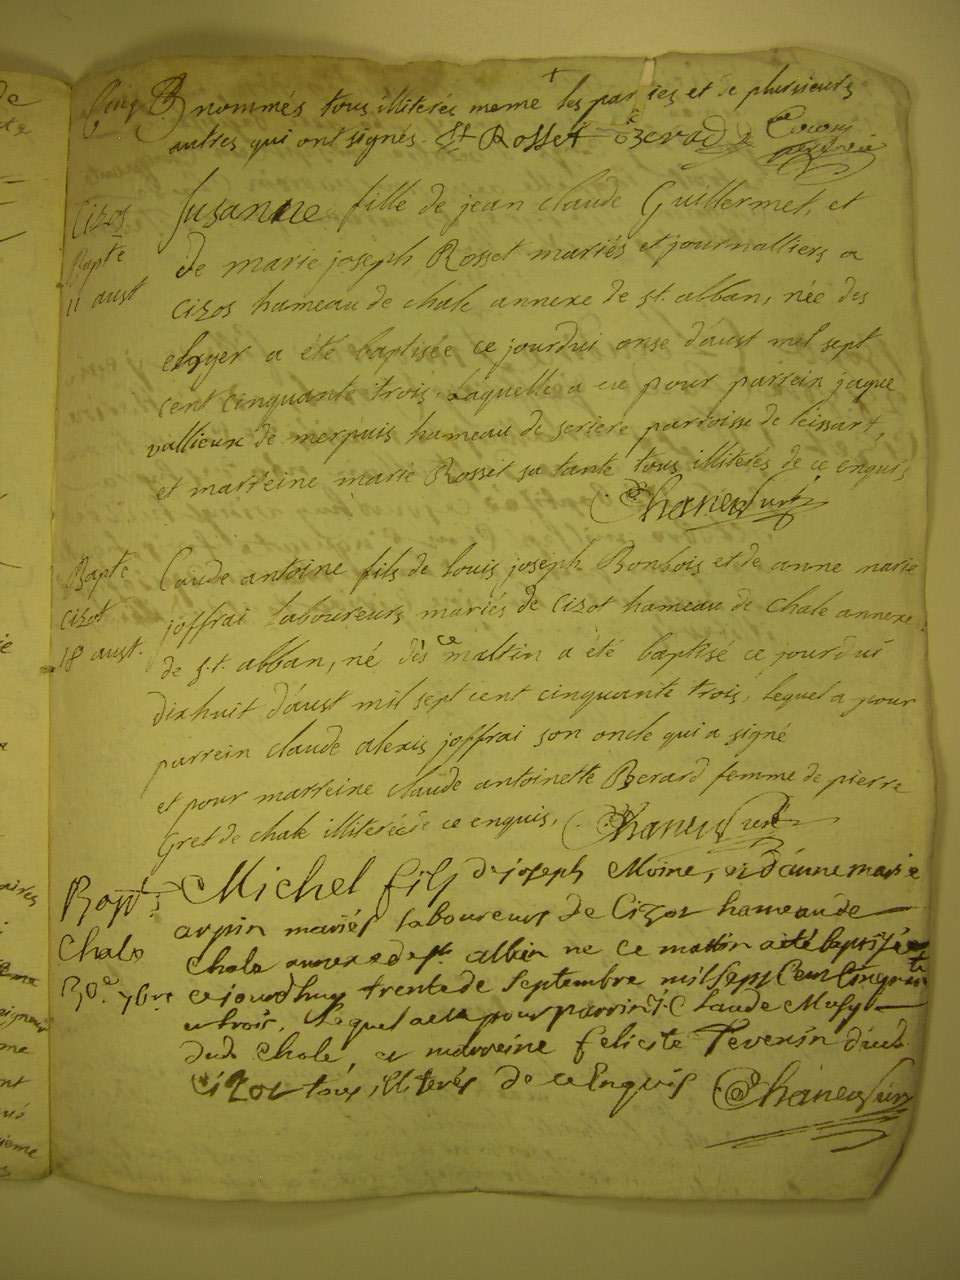 nommés tous illiterés meme les parties et de plusieurs
autres qui ont signés. Rosset
Cizos
Bapte
11 aust
Susanne fille de jean claude Guillermet, et
de marie joseph Rosset mariés et journalliers a
cizos hameau de chale annexe de st. alban, née des
a été baptisée ce jourdui onse d'aust mil sept
cent cinquante trois. Laquelle a eu pour parrein jaque
vallieux de merpuis hameau de seriere parroisse de leissart,
et marreine marie Rosset sa tante tous illiterés de ce enquis
Bapte
cizot
18 aust.
Claude antoine fils de louis joseph Bonbois et de anne marie
joffrai laboureurs mariés de cizot hameau de chale annexe
de s.t. alban, né dès ce mattin a été baptisé ce jourdui
dixhuit d'aust mil sept cent cinquante trois, lequel a pour
parrein claude alexis joffrai son oncle qui a signé
et pour marreine claude antoinette Berard femme de pierre
Gret de chale illiterée de ce enquis.
Bapt
Chale
30e 7bre
Michel fils de joseph Moine, et d'anne marie
arpin mariés laboureurs de Cizot hameau de
chale annexe de st alban ne ce mattin a été baptisé
cejourdhuy trente de Septembre mil sept Cent Cinquante
et trois, lequel a eu pour parrin Claude
dud. Chale, et marreine felicité Tevenin dud.
Cizot illiterés de ce Enquis